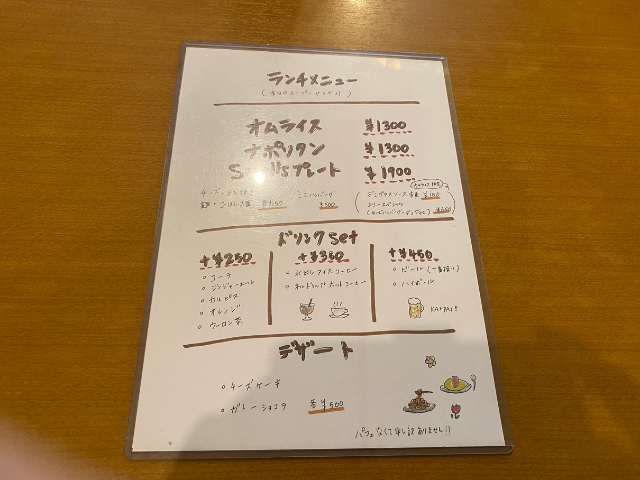 ランチメニュー
(本日のスープ・サラダ付)
オムライス ¥1300
ナポリタン ¥1300
プレート ¥1900
ミニハンバーグ
¥500
ドリンクset
+¥250
○ コーラ
○ ジンジャーエール
○ カルピス
○ オレンジ
○ ウーロン茶
+¥350
○ 水出しアイスコーヒー
○ ホットコーヒー
+¥450
○ ビール (一番搾り)
○ ハイボール
KANPAI!!
デザート
○ チーズケーキ
○ ガトーショコラ 各¥500
パフェなくて申し訳ありません!!